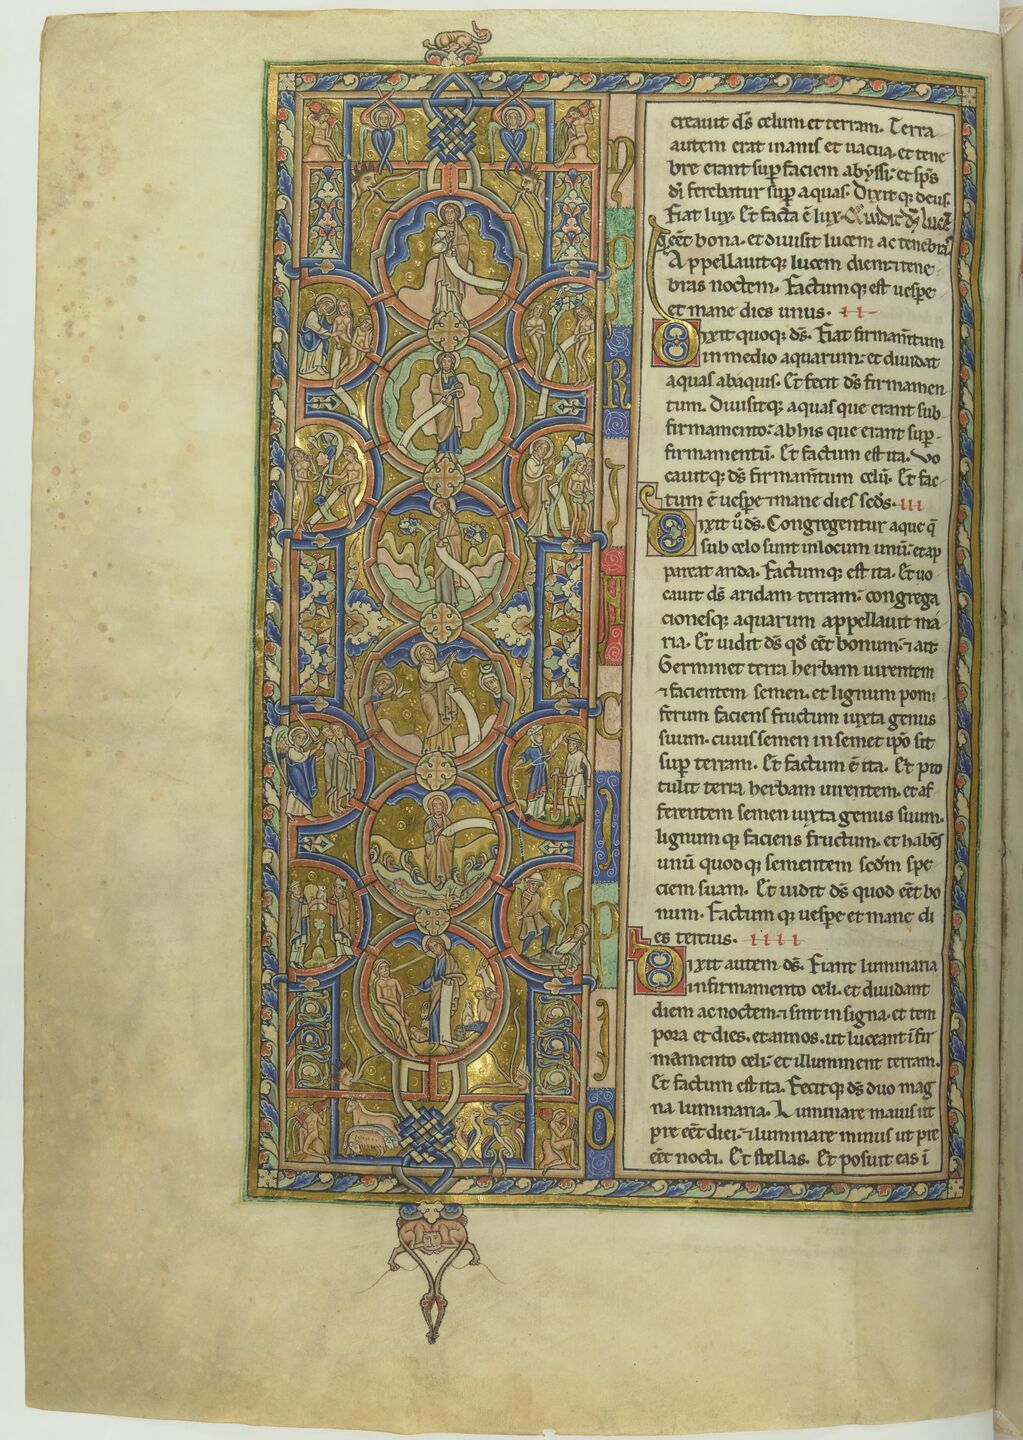 IN
P
R
I
N
C
I
P
I
O
creauit dſ celum et terram. Terra
autem erat inanis et uacua. et tene
bre erant ſuꝑ faciem abyſſi: et ſp̄s
dī ferebatur ſuꝑ aquas. Dixitq; deus.
Fiat lux. Et facta ē lux. Et uidit dſ lucē
qꝫ eēt bona. et diuiſit lucem ac tenebras.
Appellauitq; lucem diem: ⁊ tene
bras noctem. Factumq; eſt ueſpe
et mane dies unus. ıı
Dixit quoq; dſ. Fiat firmam̄tum
in medio aquarum: et diuidat
aquas ab aquis. Et fecit dſ firmamen
tum. Diuiſitq; aquas que erant ſub
firmamento: ab his que erant ſuꝑ
firmamentū. Et factum eſt ita. Vo
cauitq; dſ firmam̄tum celū. Et fac
tum ē ueſpe ⁊ mane dies ſecdſ. ııı
Dixit u̇ dſ. Congregentur aque q̄
ſub celo ſunt in locum unū: et ap
pareat arida. Factumq; eſt ita. Et uo
cauit dſ aridam terram: congrega
cioneſq; aquarum appellauit ma
ria. Et uidit dſ qđ eēt bonum: ⁊ ait
Germinet terra herbam uirentem
⁊ facientem ſemen. et lignum pomi
ferum facienſ fructum iuxta genus
ſuum. cuius ſemen in ſemet ipſo ſit
ſuꝑ terram. Et factum ē ita. Et pro
tulit terra herbam uirentem. et af
ferentem ſemen iuxta genus ſuum.
lignumq; faciens fructum. et habēſ
unū quodq; ſementem ſecdm ſpe
ciem ſuam. Et uidit dſ quod eēt bo
num. Factumq; ueſpe et mane di
es tercius. ıııı
Dixit autem dſ. Fiant luminaria
in firmamento celi. et diuidant
diem ac noctem. ⁊ ſint in ſigna. et tem
pora et dies. et annos. ut luceant ī fir
mamento celi: et illuminent terram.
Et factum eſt ita. Fecitq; dſ duo mag
na luminaria. Luminare maius ut
pre eēt diei: ⁊ luminare minus ut pre
eēt nocti. Et ſtellas. Et poſuit eas ī